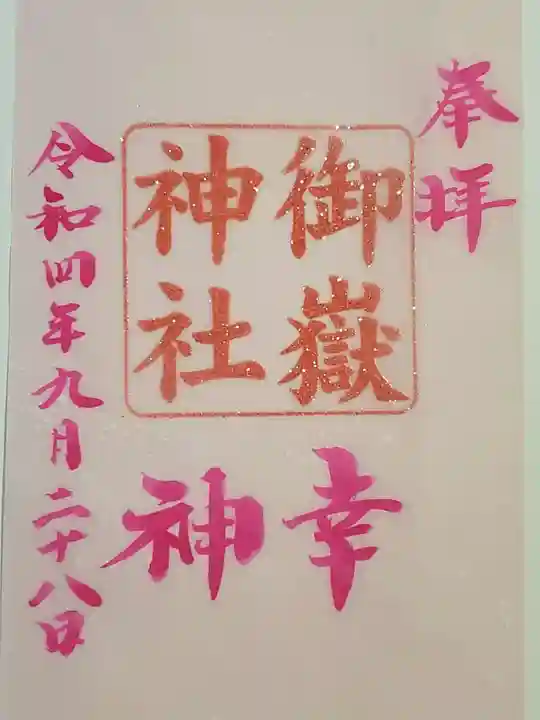 奉拝
御嶽
神社
幸
神
令和四年九月二十八日